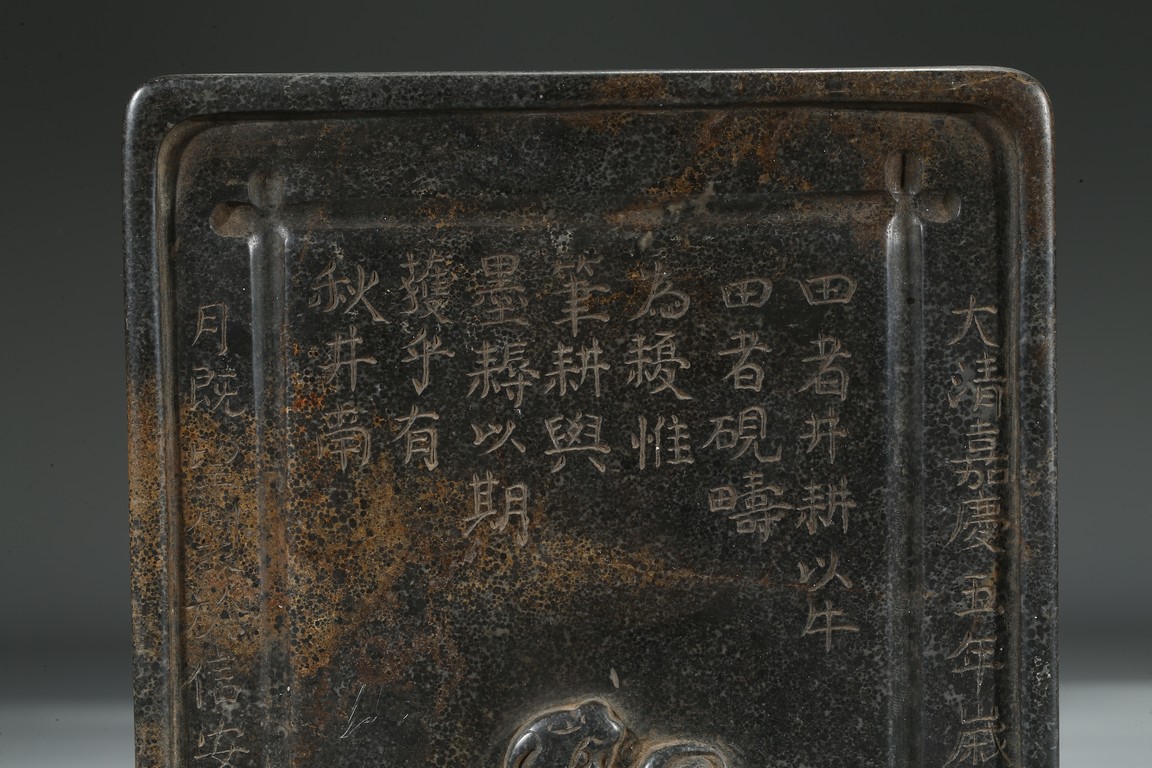 大清嘉慶五年歲
田者井耕以牛
田者硯疇
為耰惟
筆耕與
墨耨以期
穫乎有
秋井南
月既望
信安